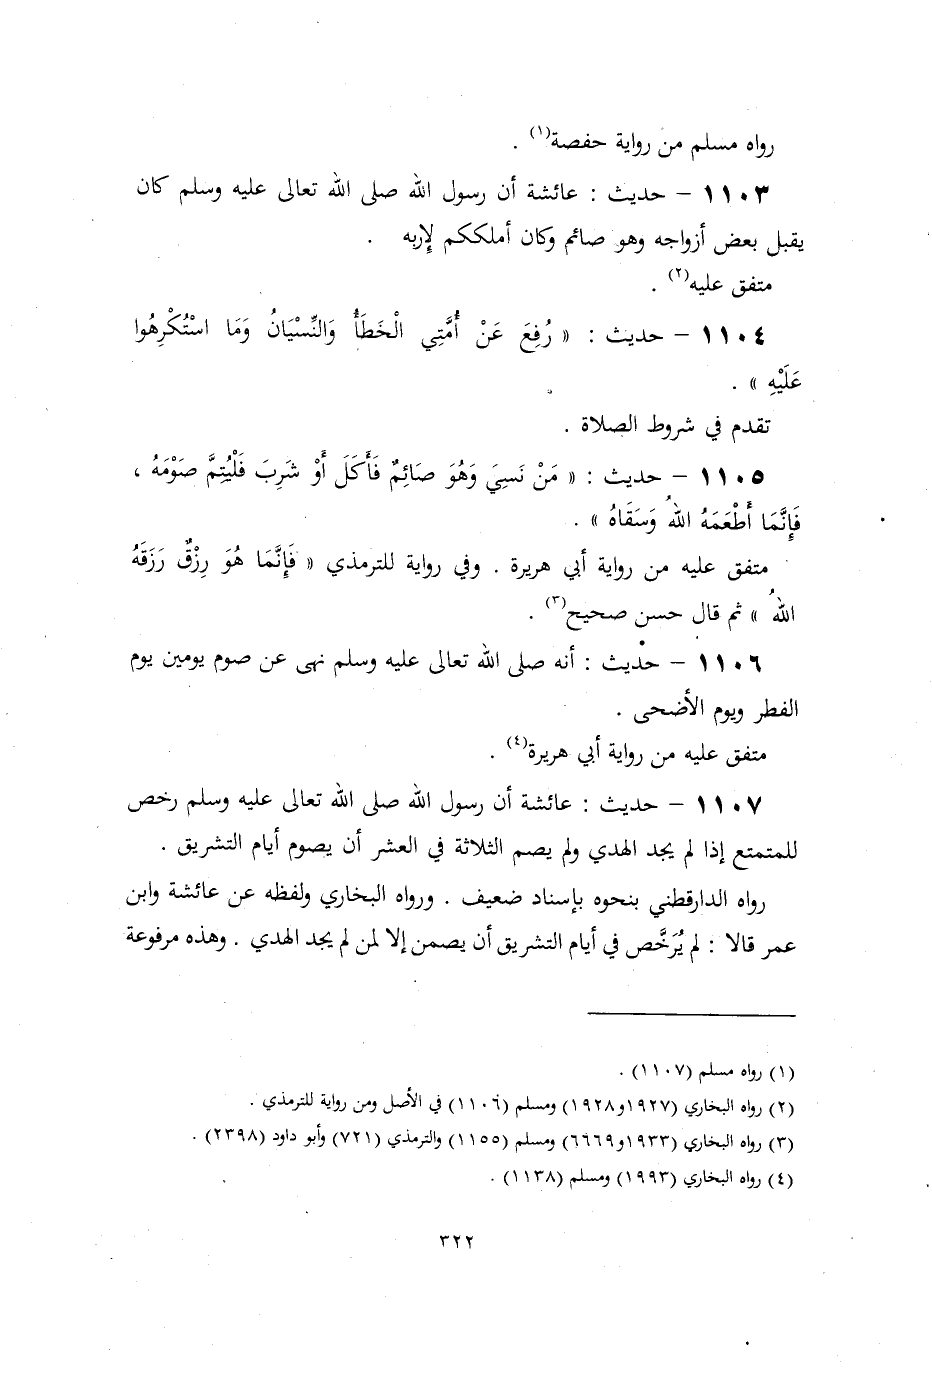 رواه مسلم من رواية حفصة(١) .
١١٠٣ – حديث : عائشة أن رسول الله صلى الله تعالى عليه وسلم كان
يقبل بعض أزواجه وهو صائم وكان أملككم لإربه .
متفق عليه(٢) .
١١٠٤ – حديث : « رُفِعَ عَنْ أُمَّتِي الْخَطَأُ وَالنِّسْيَانُ وَمَا اسْتُكْرِهُوا
عَلَيْهِ » .
تقدم في شروط الصلاة .
١١٠٥ – حديث : « مَنْ نَسِيَ وَهُوَ صَائِمٌ فَأَكَلَ أَوْ شَرِبَ فَلْيُتِمَّ صَوْمَهُ ،
فَإِنَّمَا أَطْعَمَهُ اللهُ وَسَقَاهُ » .
متفق عليه من رواية أبي هريرة . وفي رواية للترمذي « فَإِنَّمَا هُوَ رِزْقٌ رَزَقَهُ
اللهُ » ثم قال حسن صحيح(٣) .
١١٠٦ – حديث : أنه صلى الله تعالى عليه وسلم نهى عن صوم يومين يوم
الفطر ويوم الأضحى .
متفق عليه من رواية أبي هريرة(٤) .
١١٠٧ – حديث : عائشة أن رسول الله صلى الله تعالى عليه وسلم رخص
للمتمتع إذا لم يجد الهدي ولم يصم الثلاثة في العشر أن يصوم أيام التشريق .
رواه الدارقطني بنحوه بإسناد ضعيف . ورواه البخاري ولفظه عن عائشة وابن
عمر قالا : لم يُرَخَّص في أيام التشريق أن يصمن إلا لمن لم يجد الهدي . وهذه مرفوعة
(١) رواه مسلم (١١٠٧) .
(٢) رواه البخاري (١٩٢٧و١٩٢٨) ومسلم (١١٠٦) في الأصل ومن رواية للترمذي .
(٣) رواه البخاري (١٩٣٣و٦٦٦٩) ومسلم (١١٥٥) والترمذي (٧٢١) وأبو داود (٢٣٩٨) .
(٤) رواه البخاري (١٩٩٣) ومسلم (١١٣٨) .
٣٢٢